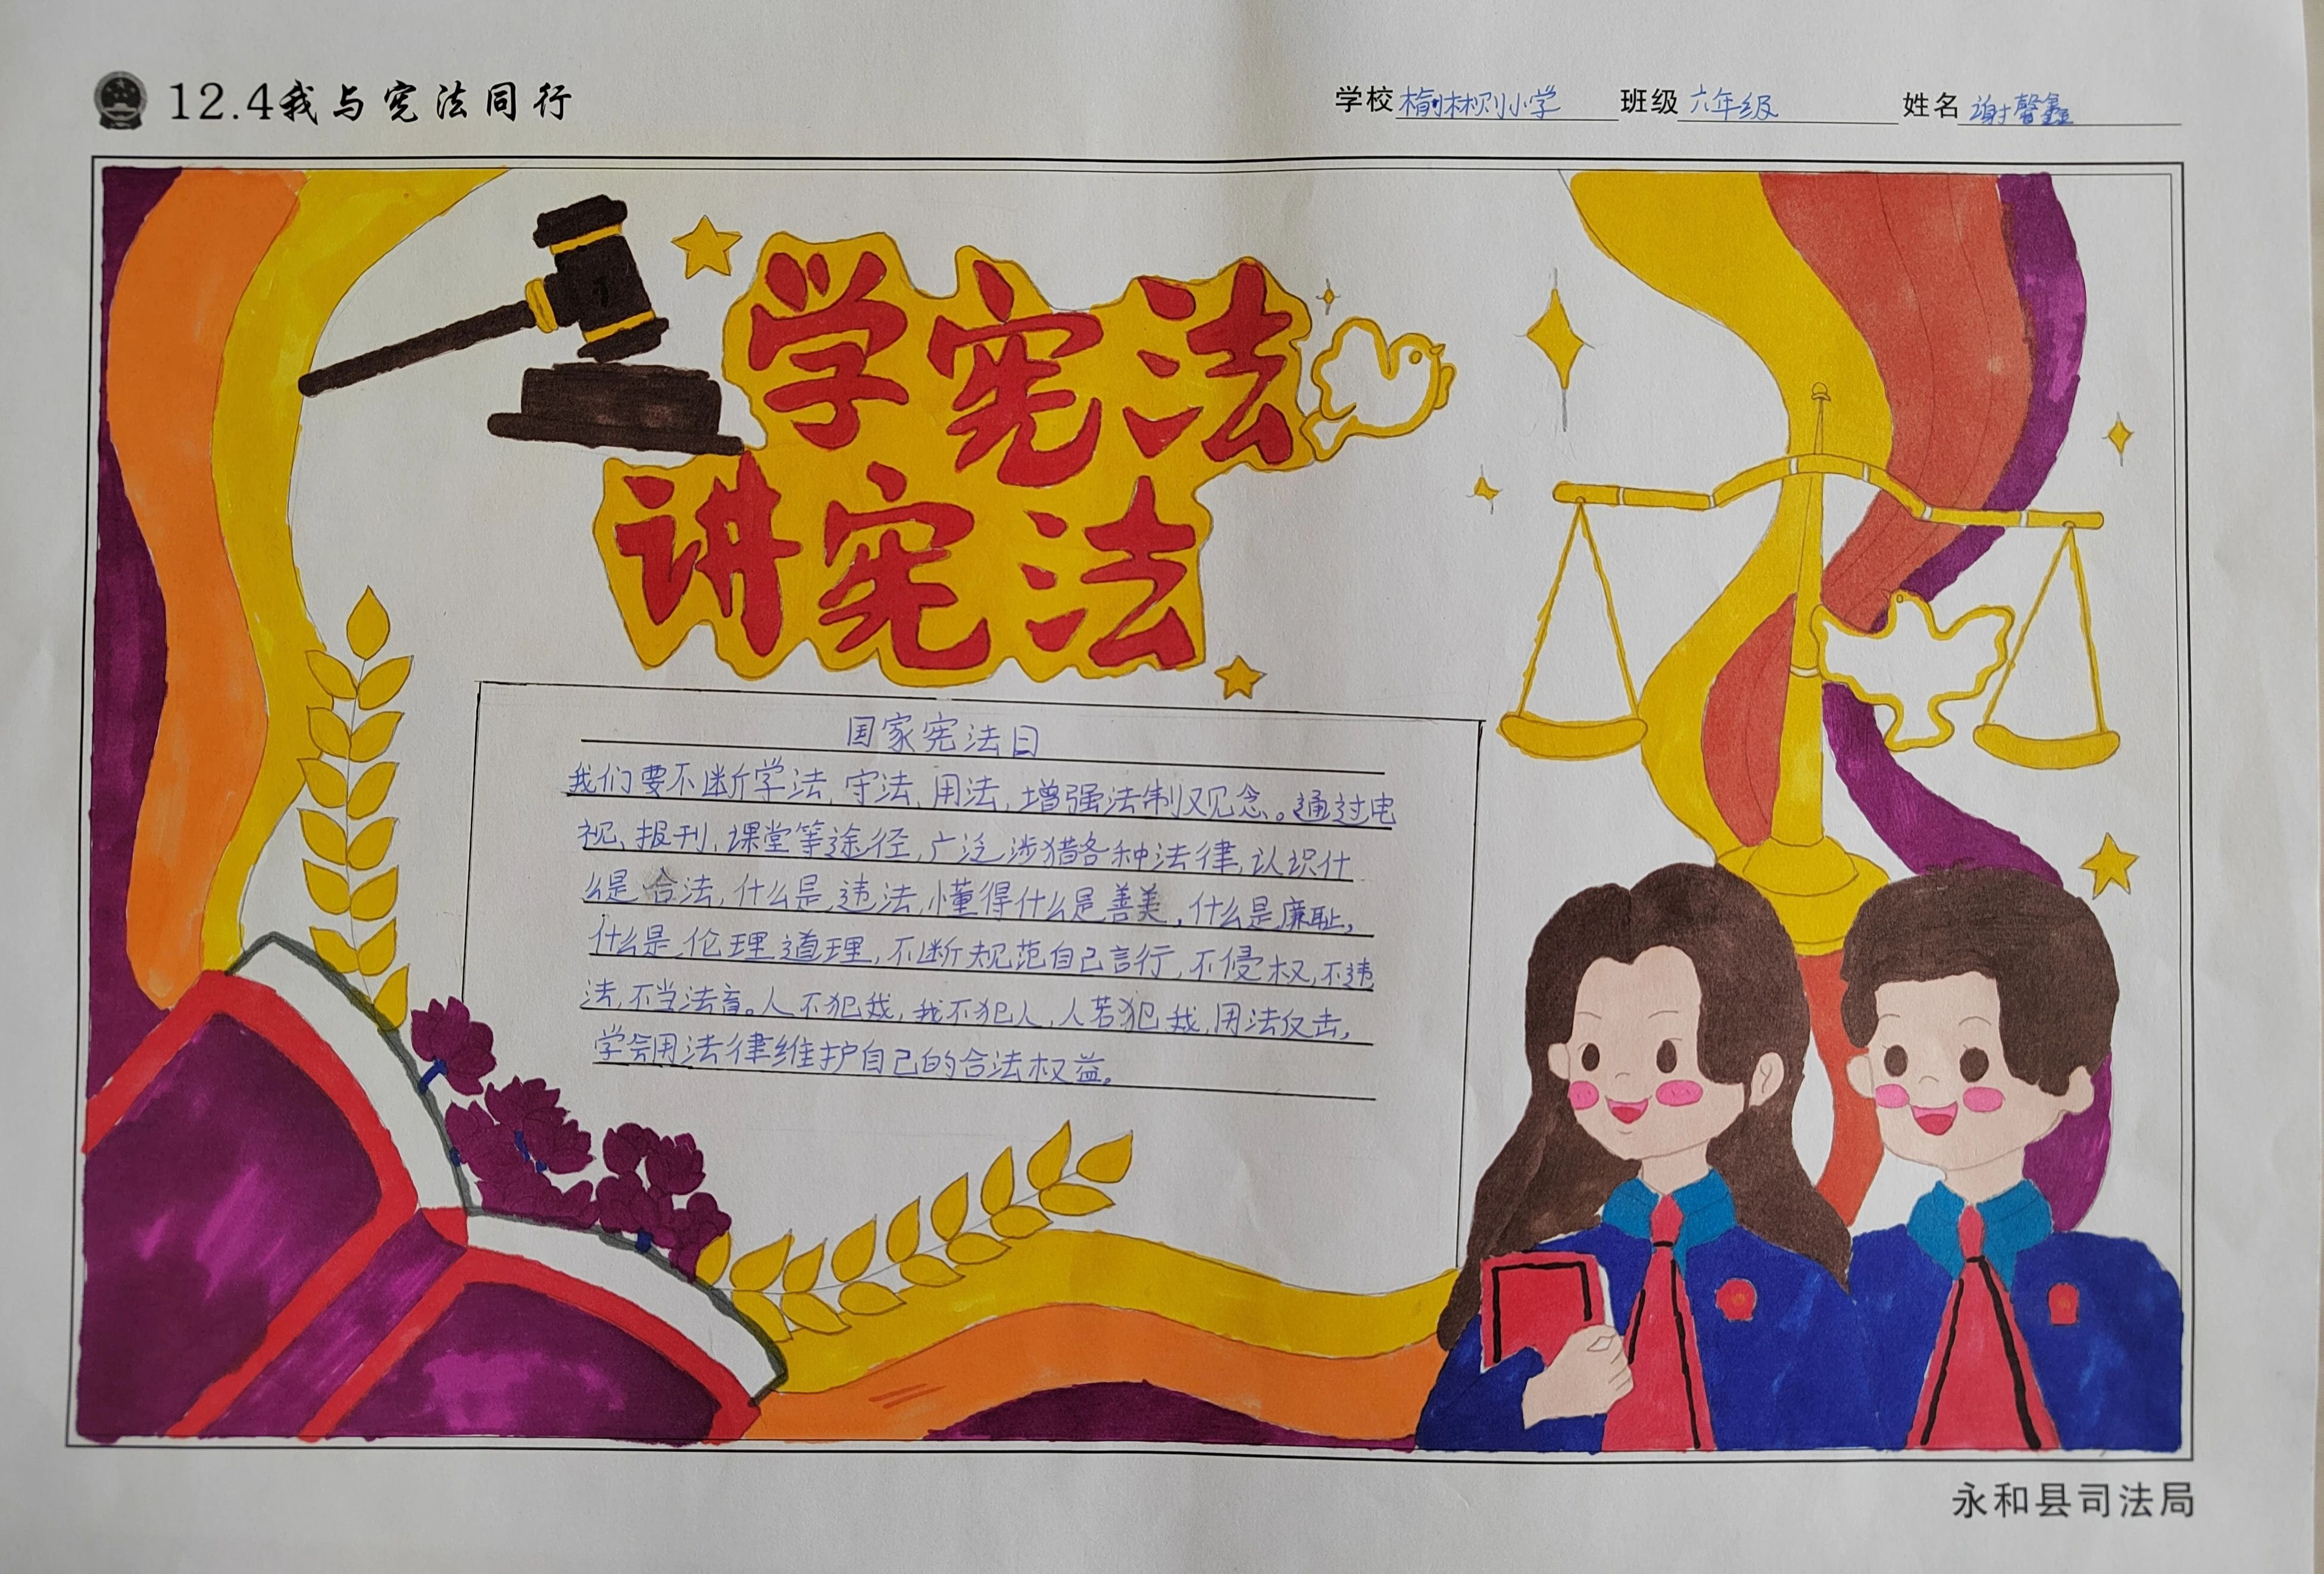 12.4我与宪法同行
学校 榆林则小学 班级 六年级 姓名 谢馨鑫
学宪法
讲宪法
国家宪法日
我们要不断学法,守法,用法,增强法制观念。通过电
视、报刊,课堂等途径,广泛涉猎各种法律,认识什
么是合法,什么是违法,懂得什么是善美,什么是廉耻,
什么是伦理道理,不断规范自己言行,不侵权,不违
法,不当法盲。人不犯我,我不犯人,人若犯我,用法反击,
学会用法律维护自己的合法权益。
永和县司法局